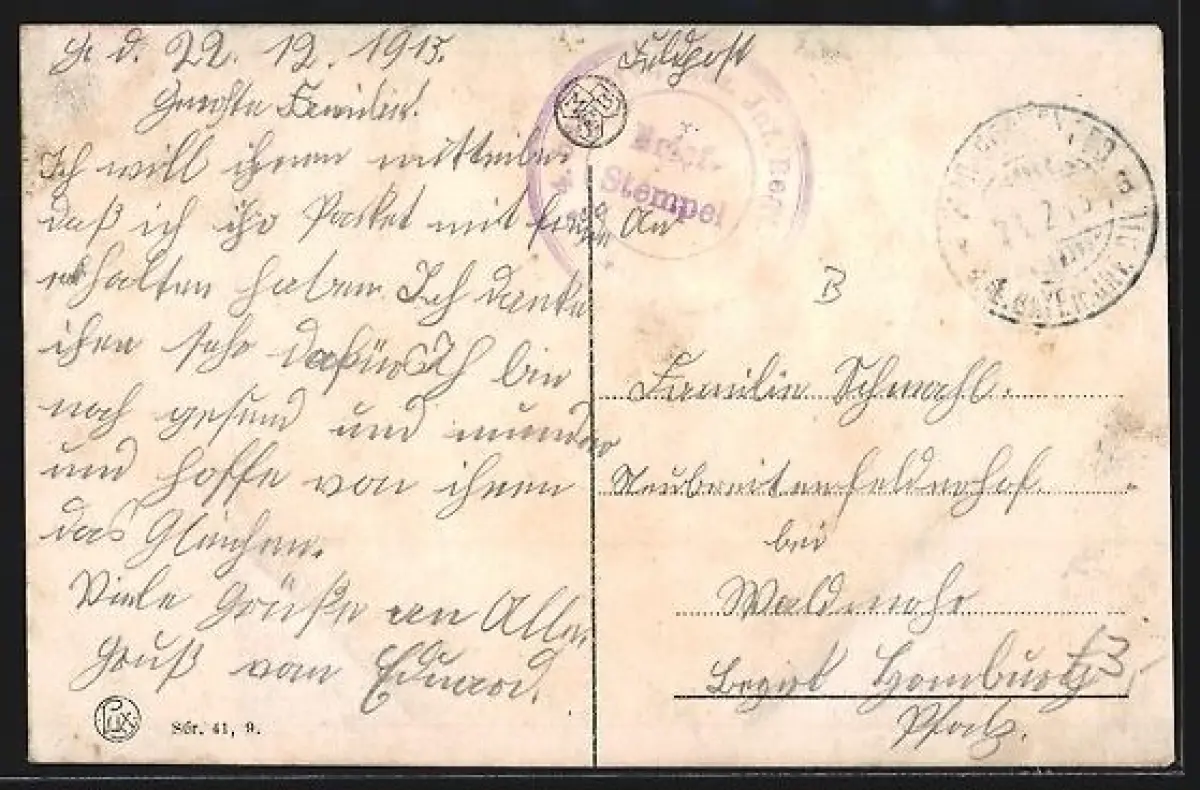 d. 22. 12. 1915.
Geehrte Familie.
Ich will ihnen mitteilen
daß ich ihr Packet mit
erhalten haben. Ich danke
ihnen sehr dafür Ich bin
noch gesund und munder
und hoffe von ihnen
das Gleichen.
Viele Grüße an Alle.
Gruß vom Eduard.
Lux
Sér. 41, 9.
Feldpost
Brief-
Stempel
B
Familie Schmahl.
Neubreitenfelderhof.
bei
Waldmohr
Bezirk Homburg
Pfalz.